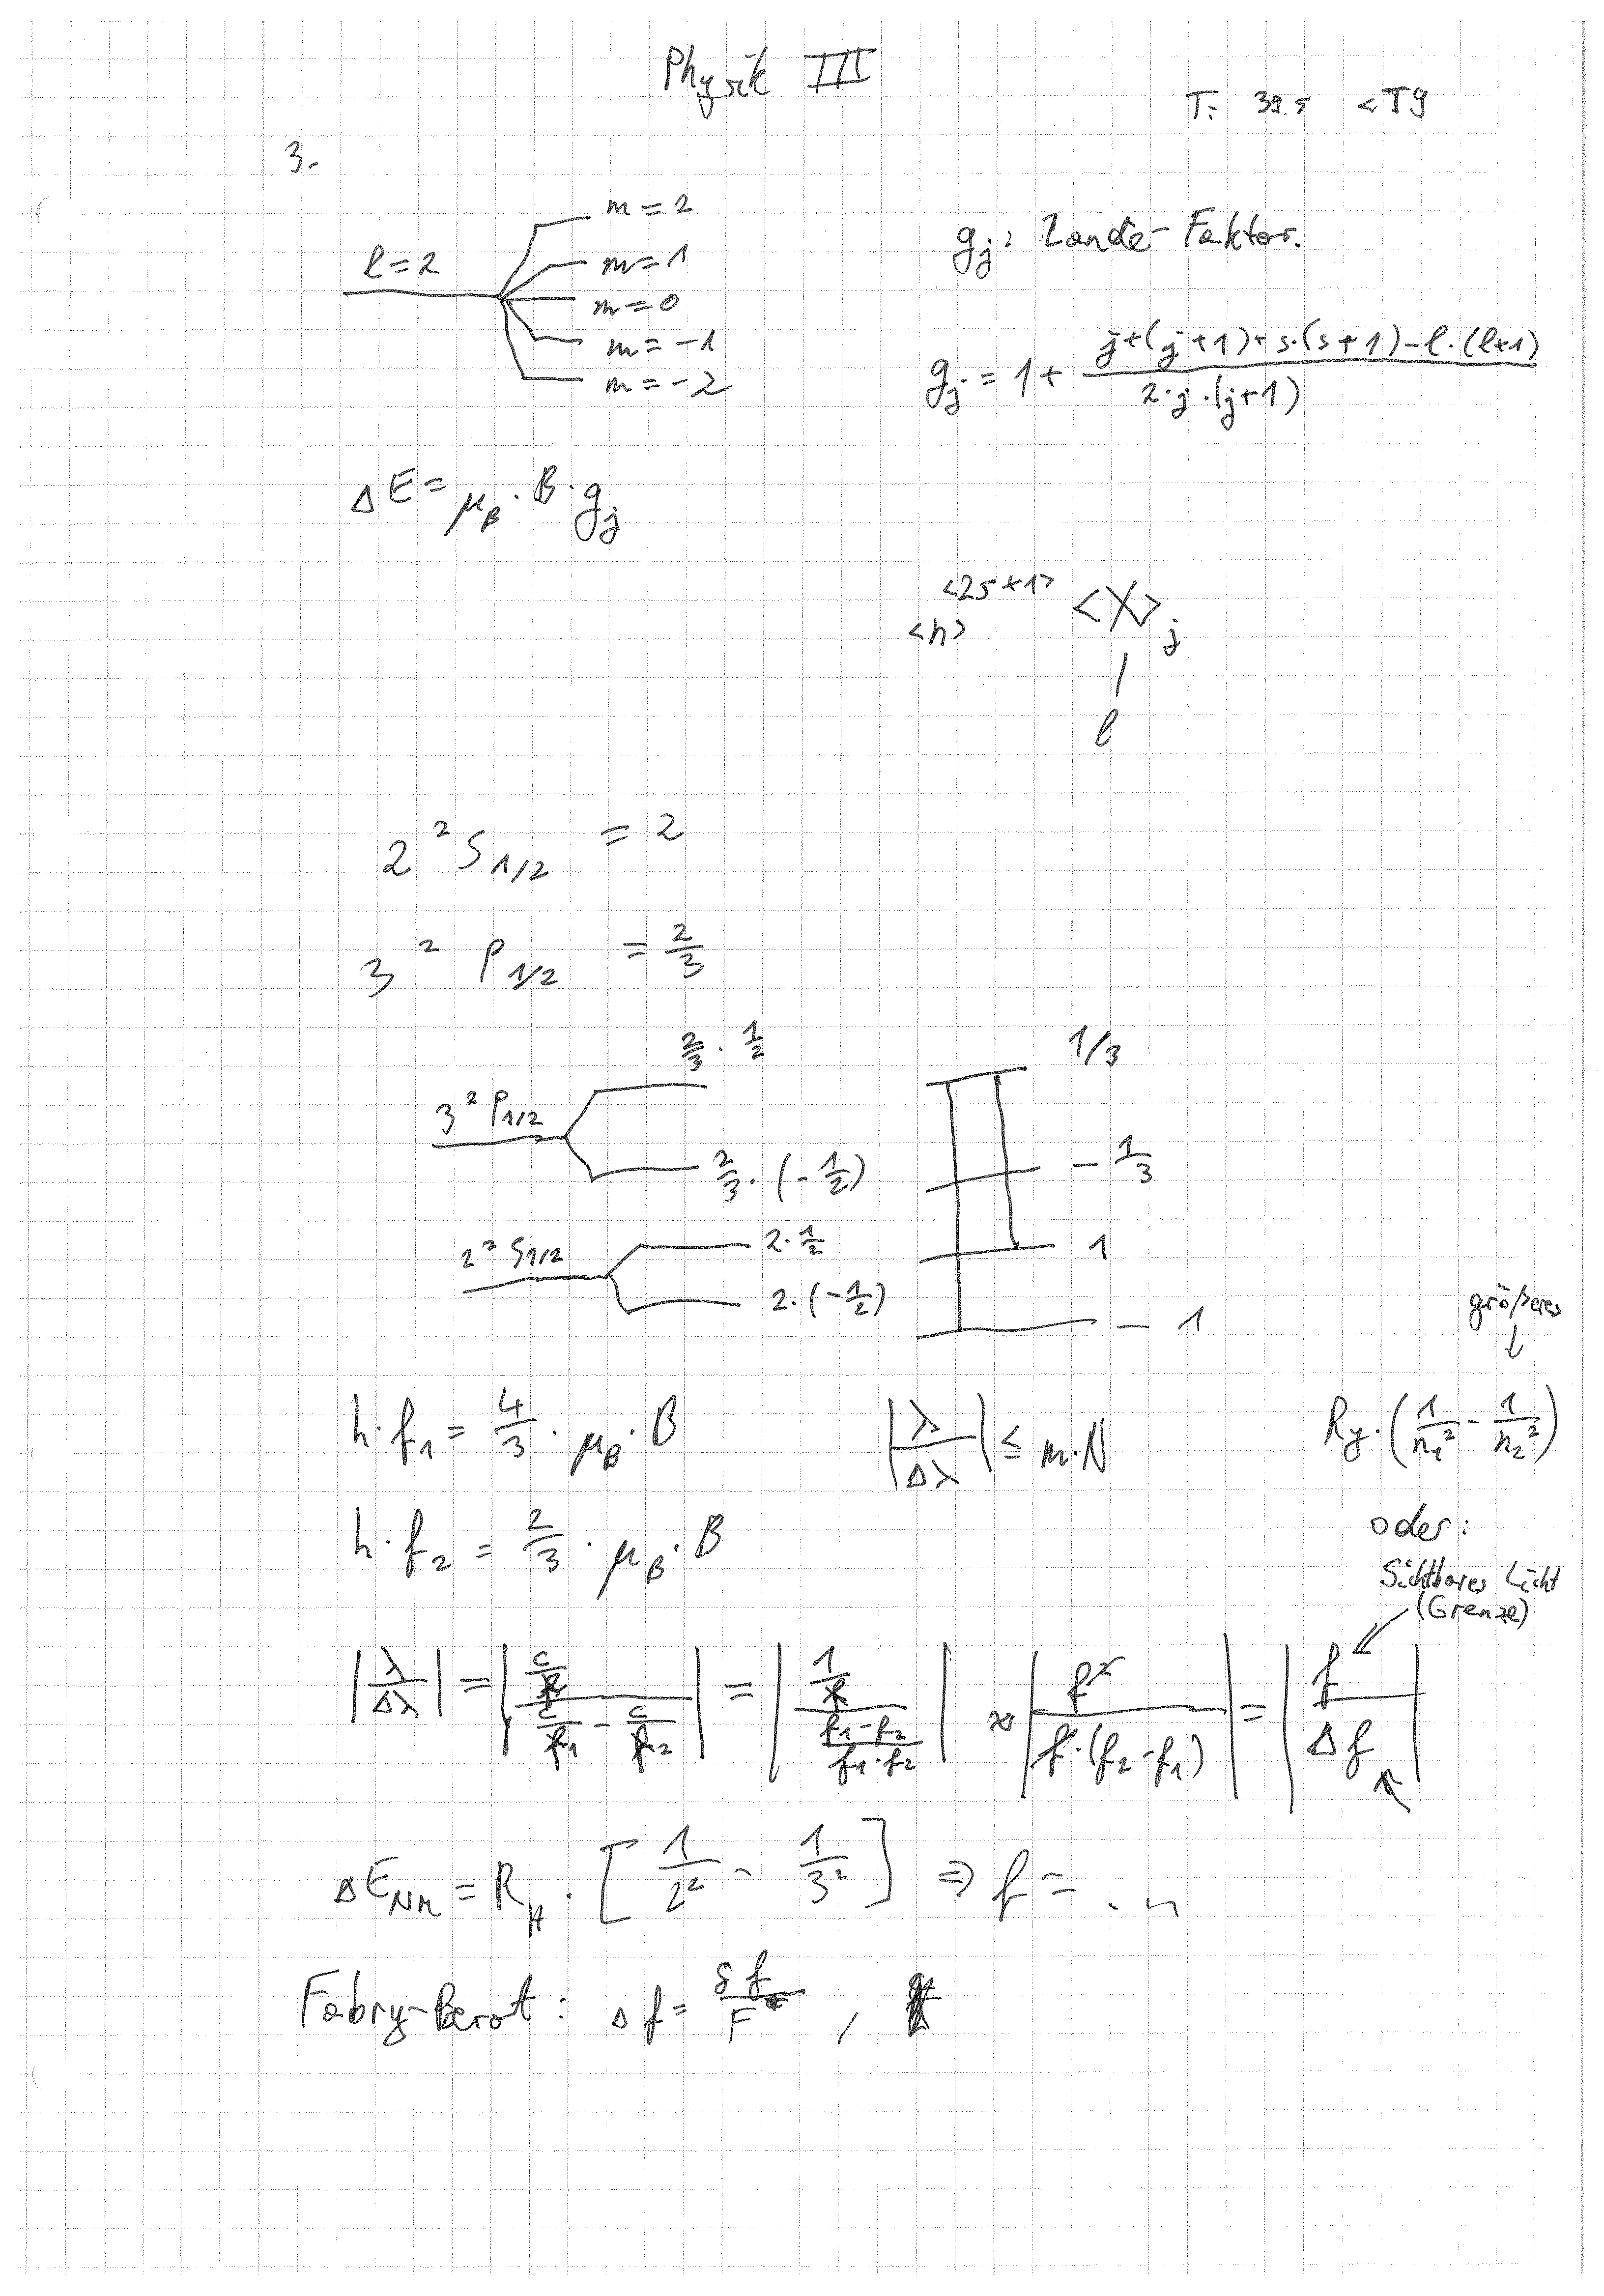 Physik III
T: 39.5 <T9
3.
l=2
m=2
m=1
m=0
m=-1
m=-2
g_j: Lande-Faktor.
g_j = 1 + (j+(j+1)+s·(s+1)-l·(l+1))/(2·j·(j+1))
ΔE = μ_B · B · g_j
<n> ^<2s+1> <X>_j
l
2 ²S_1/2 = 2
3 ² P_1/2 = 2/3
3 ² P_1/2
2/3 · 1/2
2/3 · (-1/2)
2 ² S_1/2
2 · 1/2
2 · (-1/2)
1/3
- 1/3
1
- 1
h·f_1 = 4/3 · μ_B · B
|λ/Δλ| ≤ m·N
größeres
↓
Ry·(1/n_1² - 1/n_2²)
h·f_2 = 2/3 · μ_B · B
oder:
Sichtbares Licht
(Grenze)
|λ/Δλ| = |(c/f)/(c/f_1 - c/f_2)| = |(1/f)/((f_1-f_2)/(f_1·f_2))| ≈ |f²/(f·(f_2-f_1))| = |f/Δf|
ΔE = R_H · [1/2² - 1/3²] ⇒ f = ...
Fabry-Perot: Δf = δf/F* ,